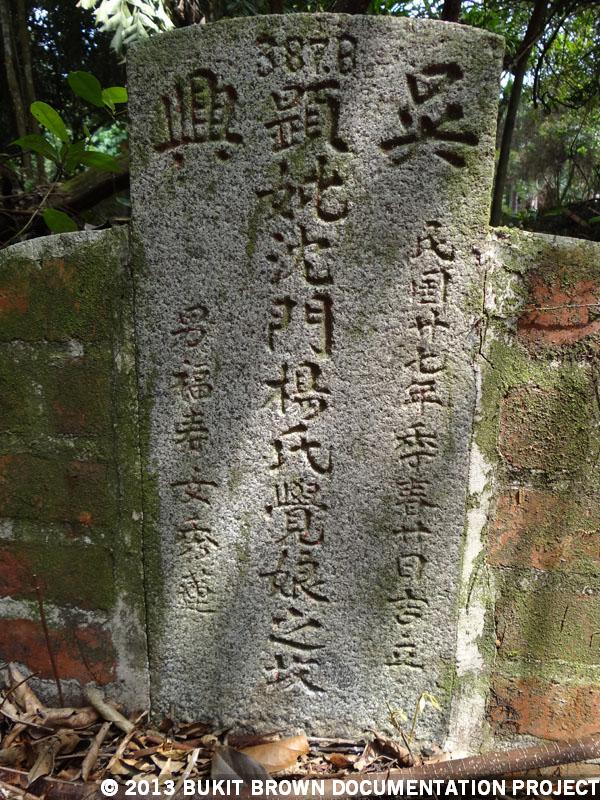 387B
吳興
民国廿七年季春廿日吉立
顕妣沈門楊氏覺娘之坟
男福春女秀蓮
© 2013 BUKIT BROWN DOCUMENTATION PROJECT